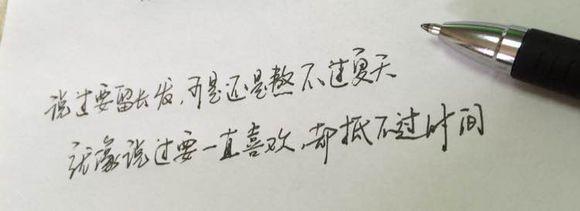 说过要留长发，可是还是熬不过夏天
就像说过要一直喜欢，却抵不过时间